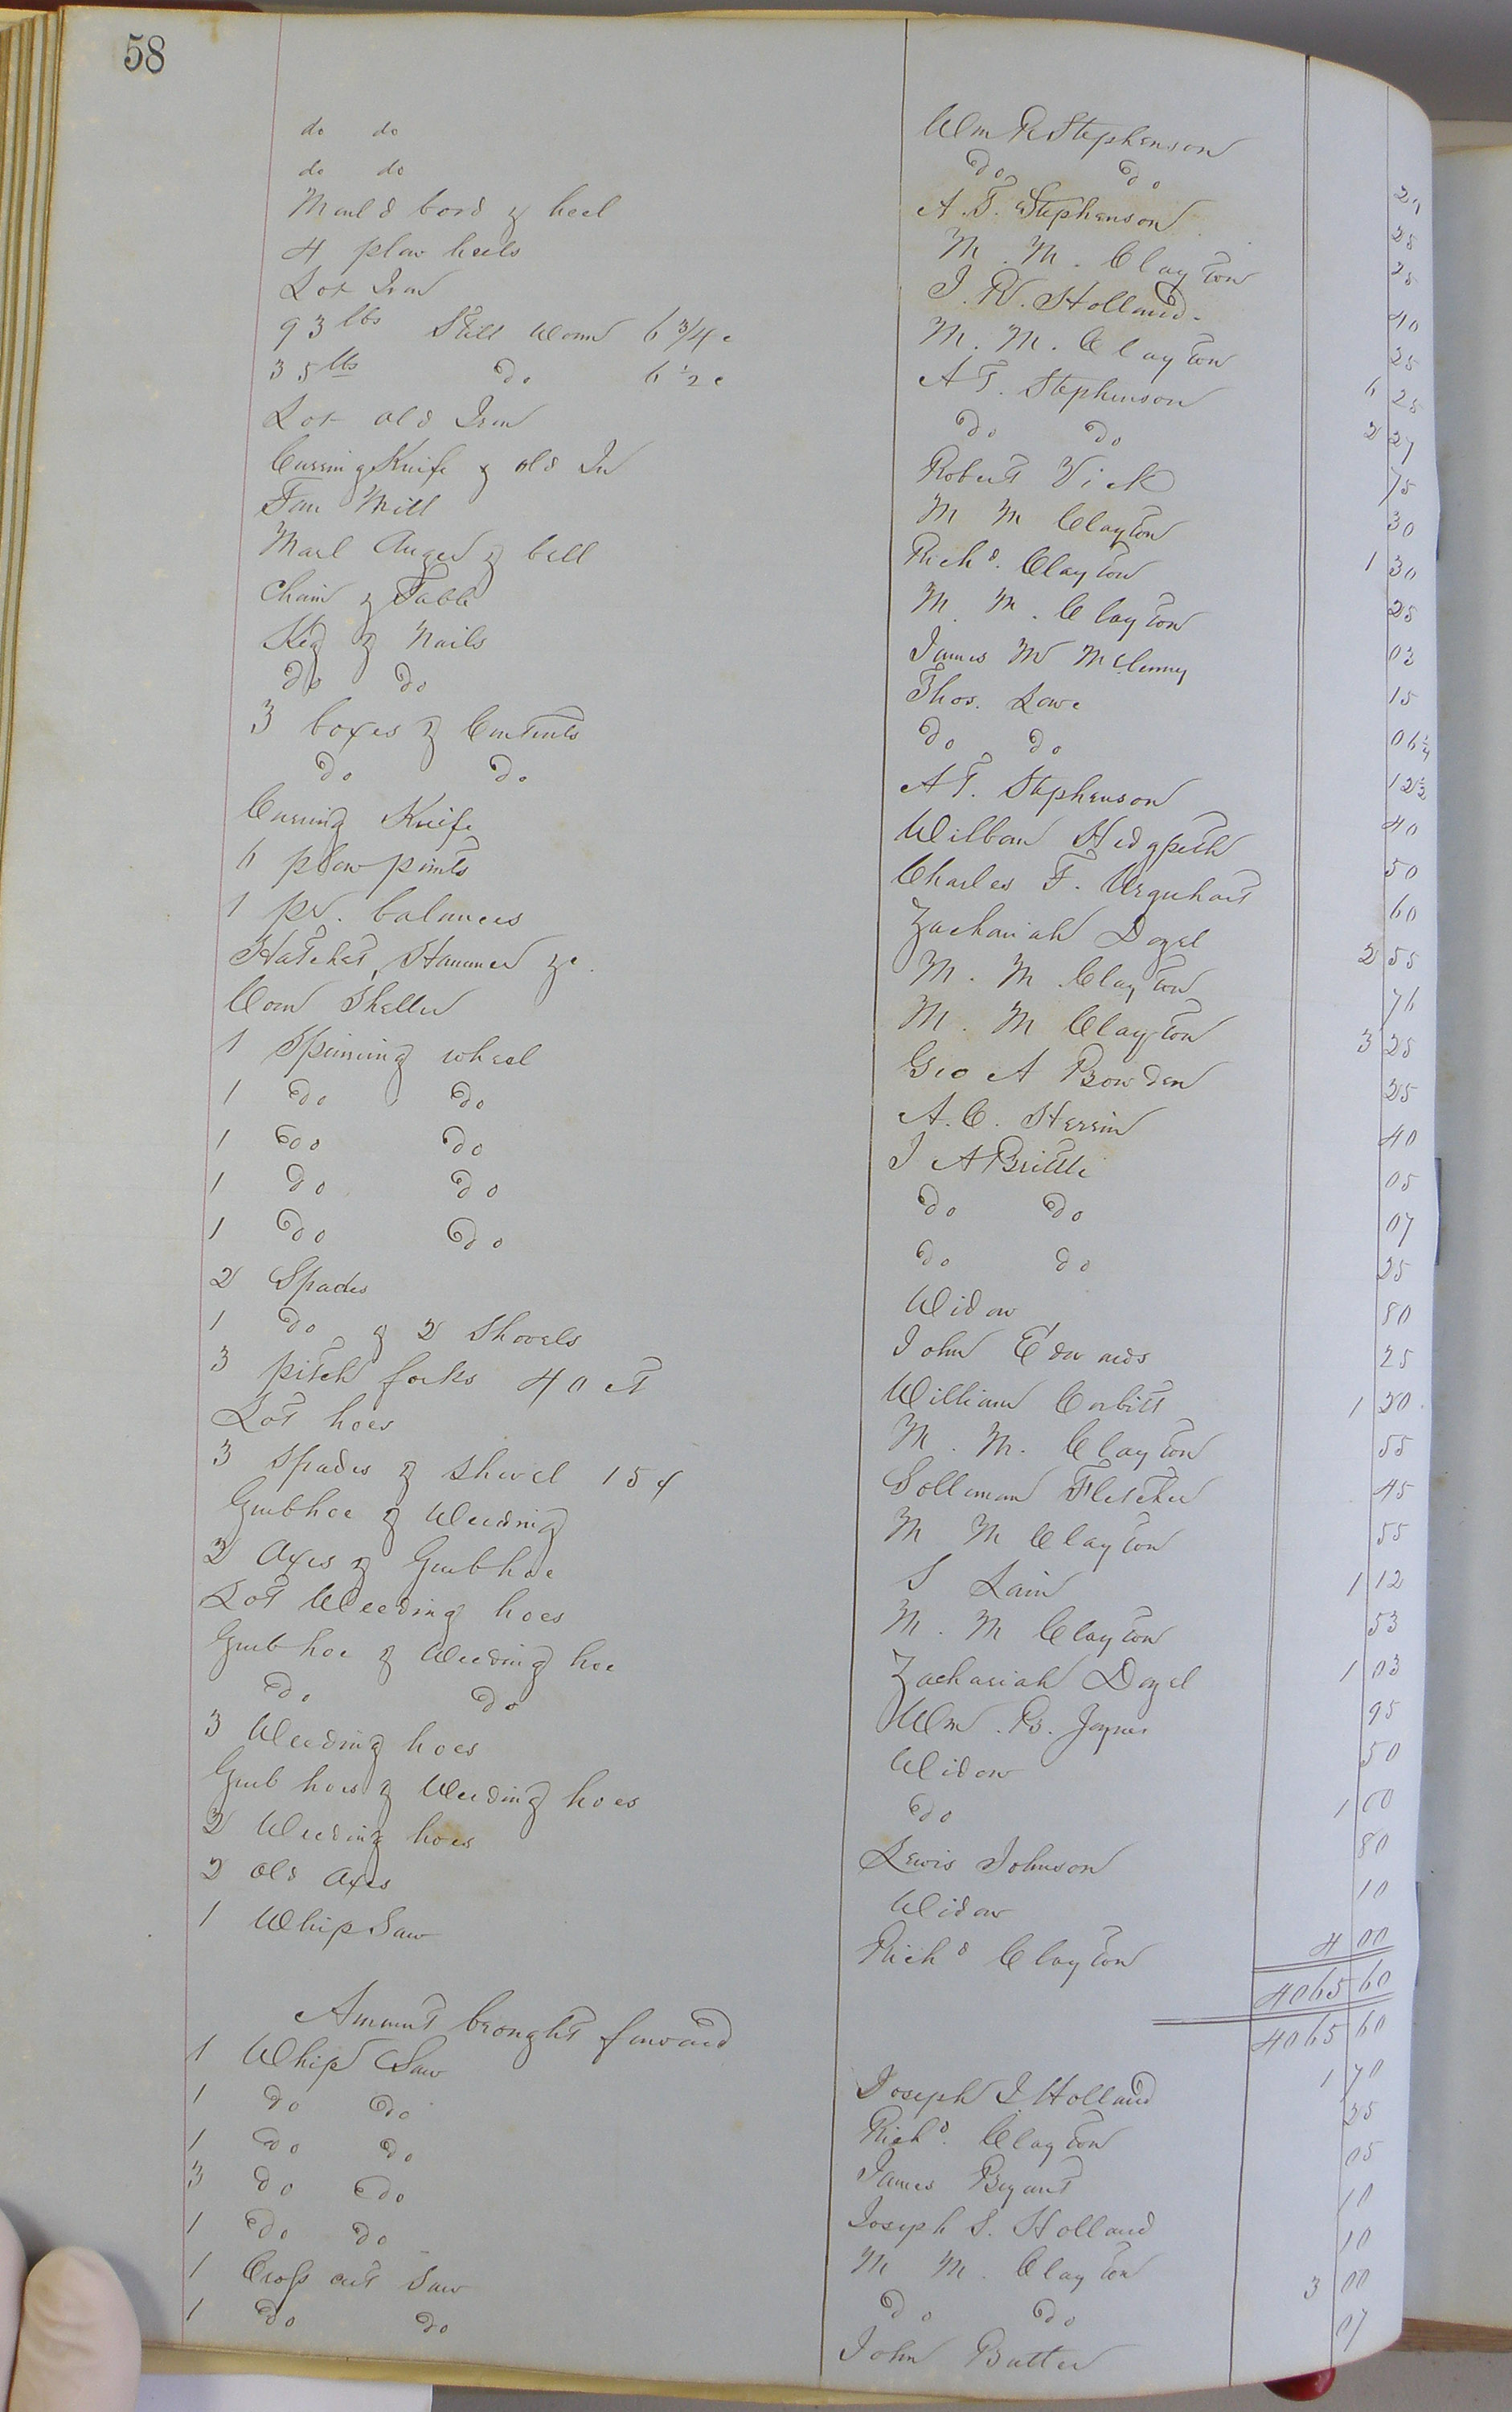 58
do do Wm R Stephenson
do do do do 25
Mould bord & heel A. T. Stephenson 25
4 plow heels M. M. Clayton 40
Lot Iron J. R. Holland 25
93 lbs Still Worm 6 3/4 c M. M. Clayton 6 25
35 lbs do 6 1/2 c A T. Stephenson 2 27
Lot old Iron do do 75
Curring Knife & old In Robert Vick 30
Fan Mill M M Clayton 1 30
Marl Auger & bell Richd. Clayton 25
Chain & Table M. M. Clayton 03
Keg & Nails James M McLenny 15
do do Thos. Lowe 06 1/4
3 boxes & Contents do do 12 1/2
do do A T. Stephenson 40
Curring Knife Wilbon Hedgpeth 50
6 plow points Charles F. Urquhart 60
1 pr. balances Zachariah Doyel 2 55
Hatchet, Hammer &c. M. M. Clayton 76
Corn Sheller M. M Clayton 3 25
1 Spinning wheel Geo A Bowden 35
1 do do A. C. Herrin 40
1 do do J A Brittle 05
1 do do do do 07
1 do do do do 25
2 Spades Widow 80
1 do & 2 Shovels John Edwards 25
3 pitch forks 40 ct William Corbitt 1 20
Lot hoes M. M. Clayton 55
3 Spades & shovel 15 ¢ Solloman Fletcher 45
Grubhoe & Weeding M M Clayton 55
2 Axes & Grubhoe S Lain 1 12
Lot Weeding hoes M. M Clayton 53
Grub hoe & Weeding hoe Zachariah Doyel 1 03
do do Wm. B. Joyner 95
3 Weeding hoes Widow 50
Grub hoes & Weeding hoes do 1 00
2 Weeding hoes Lewis Johnson 80
2 old Axes Widow 10
1 Whip Saw Richd Clayton 4 00
4065 60
Amount brought forward 4065 60
1 Whip Saw Joseph J Holland 1 70
1 do do Richd. Clayton 25
1 do do James Bryant 05
3 do do Joseph S. Holland 10
1 do do M M. Clayton 10
1 Cross cut Saw do do 3 00
1 do do John Butler 07